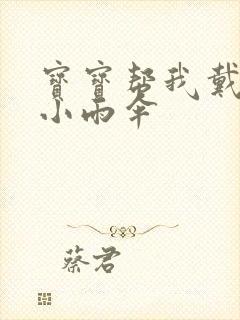 寶寶帮我戴
小雨伞
蔡君